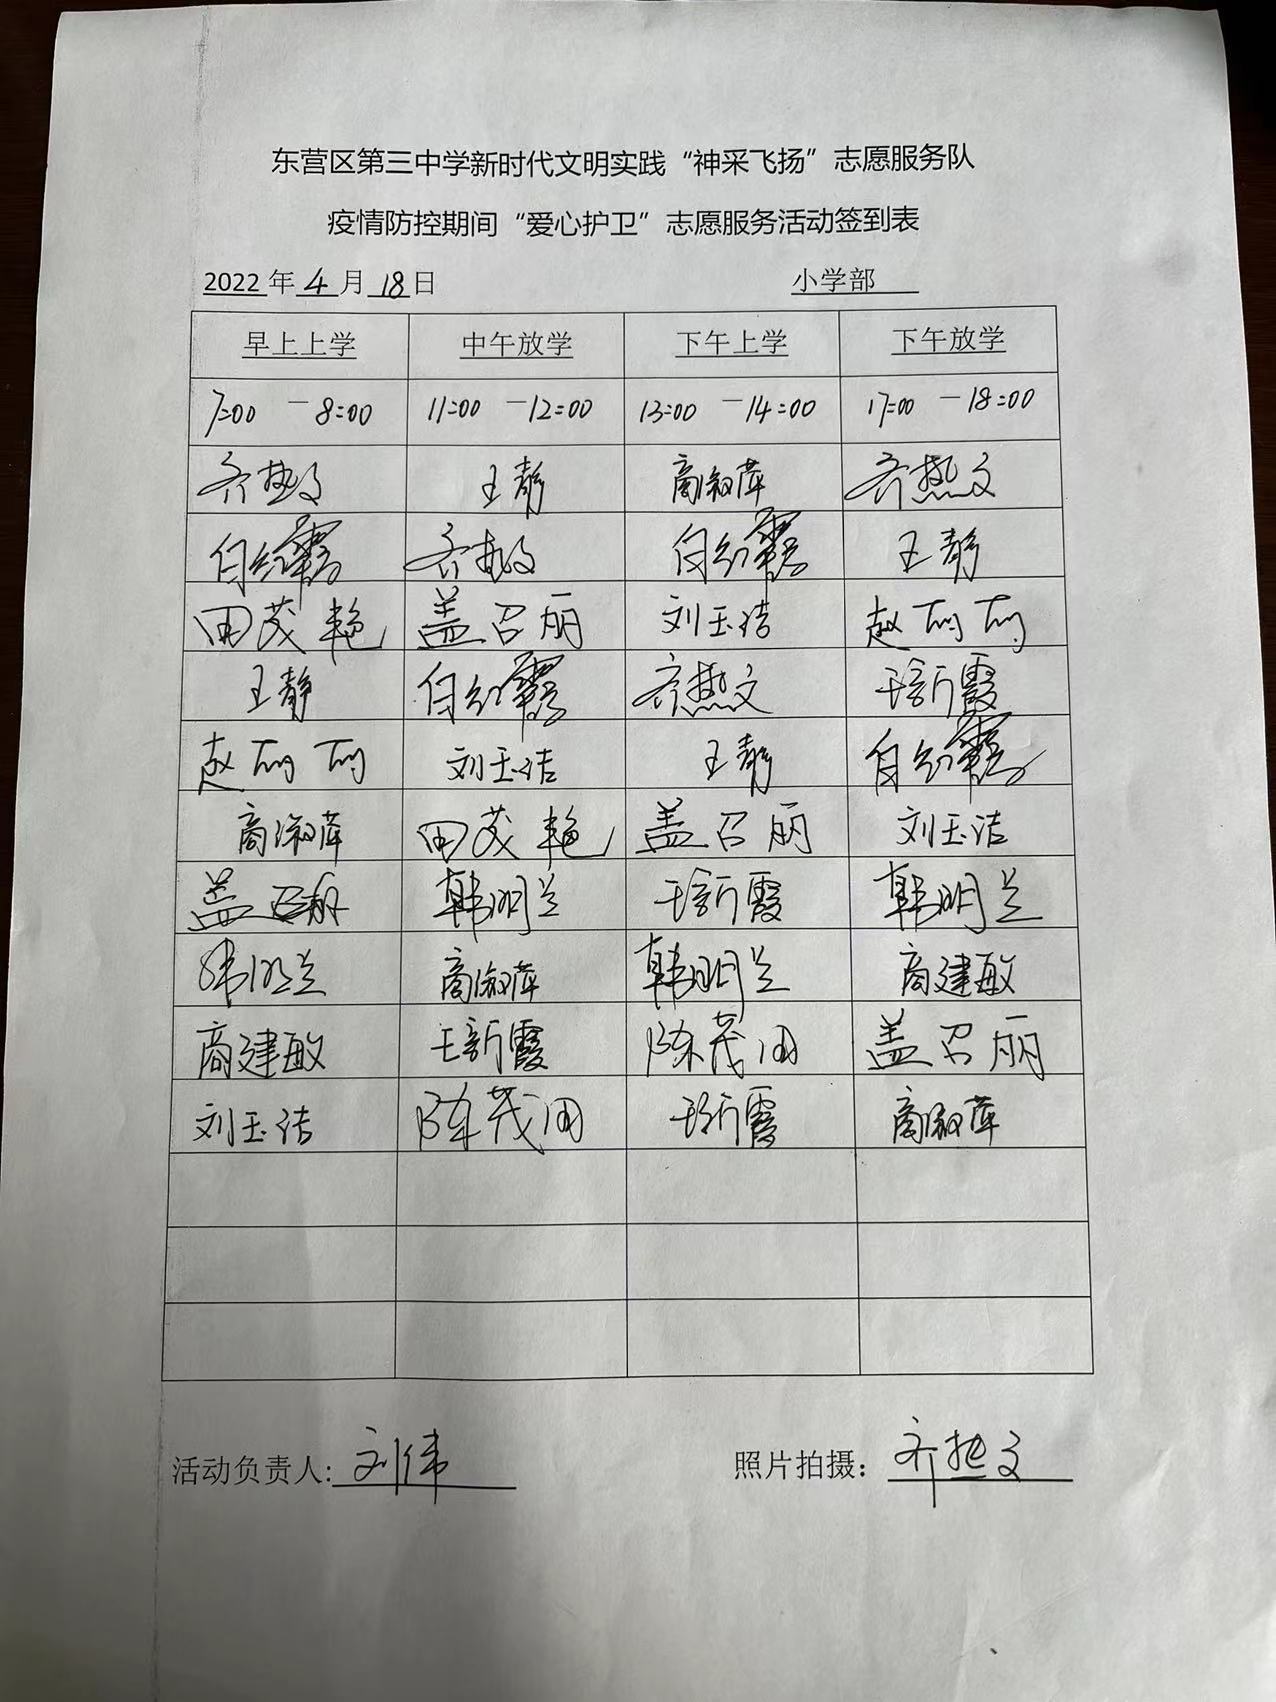 东营区第三中学新时代文明实践“神采飞扬”志愿服务队
疫情防控期间“爱心护卫”志愿服务活动签到表
2022年4月18日 小学部
早上上学 中午放学 下午上学 下午放学
7:00 —8:00 11:00 —12:00 13:00 —14:00 17:00 —18:00
齐热文 王静 商淑萍 齐热文
白红霞 齐热文 白红霞 王静
田茂艳 盖召丽 刘玉洁 赵丽丽
王静 白红霞 齐热文 王新霞
赵丽丽 刘玉洁 王静 白红霞
商淑萍 田茂艳 盖召丽 刘玉洁
盖召丽 韩明兰 王新霞 韩明兰
韩明兰 商淑萍 韩明兰 商建敏
商建敏 王新霞 陈茂田 盖召丽
刘玉洁 陈茂田 王新霞 商淑萍
活动负责人:刘伟 照片拍摄：齐热文